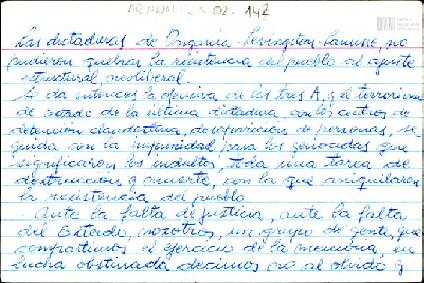 Las dictaduras de Onganía - Levingston - Lanusse, no
pudieron quebrar la resistencia del pueblo al ajuste
estructural neoliberal.
Se da entonces la ofensiva de las tres A, y el terrorismo
de estado de la última dictadura con los centros de
detención clandestina, desaparición de personas, se-
guida con la impunidad para los genocidas que
significaron los indultos, toda una tarea de
destrucción y muerte, con la que aniquilaron
la resistencia del pueblo.
Ante la falta de justicia, ante la falta
del Estado, nosotros, un grupo de gente, que
compartimos el ejercicio de la memoria, en
lucha obstinada decimos no al olvido y